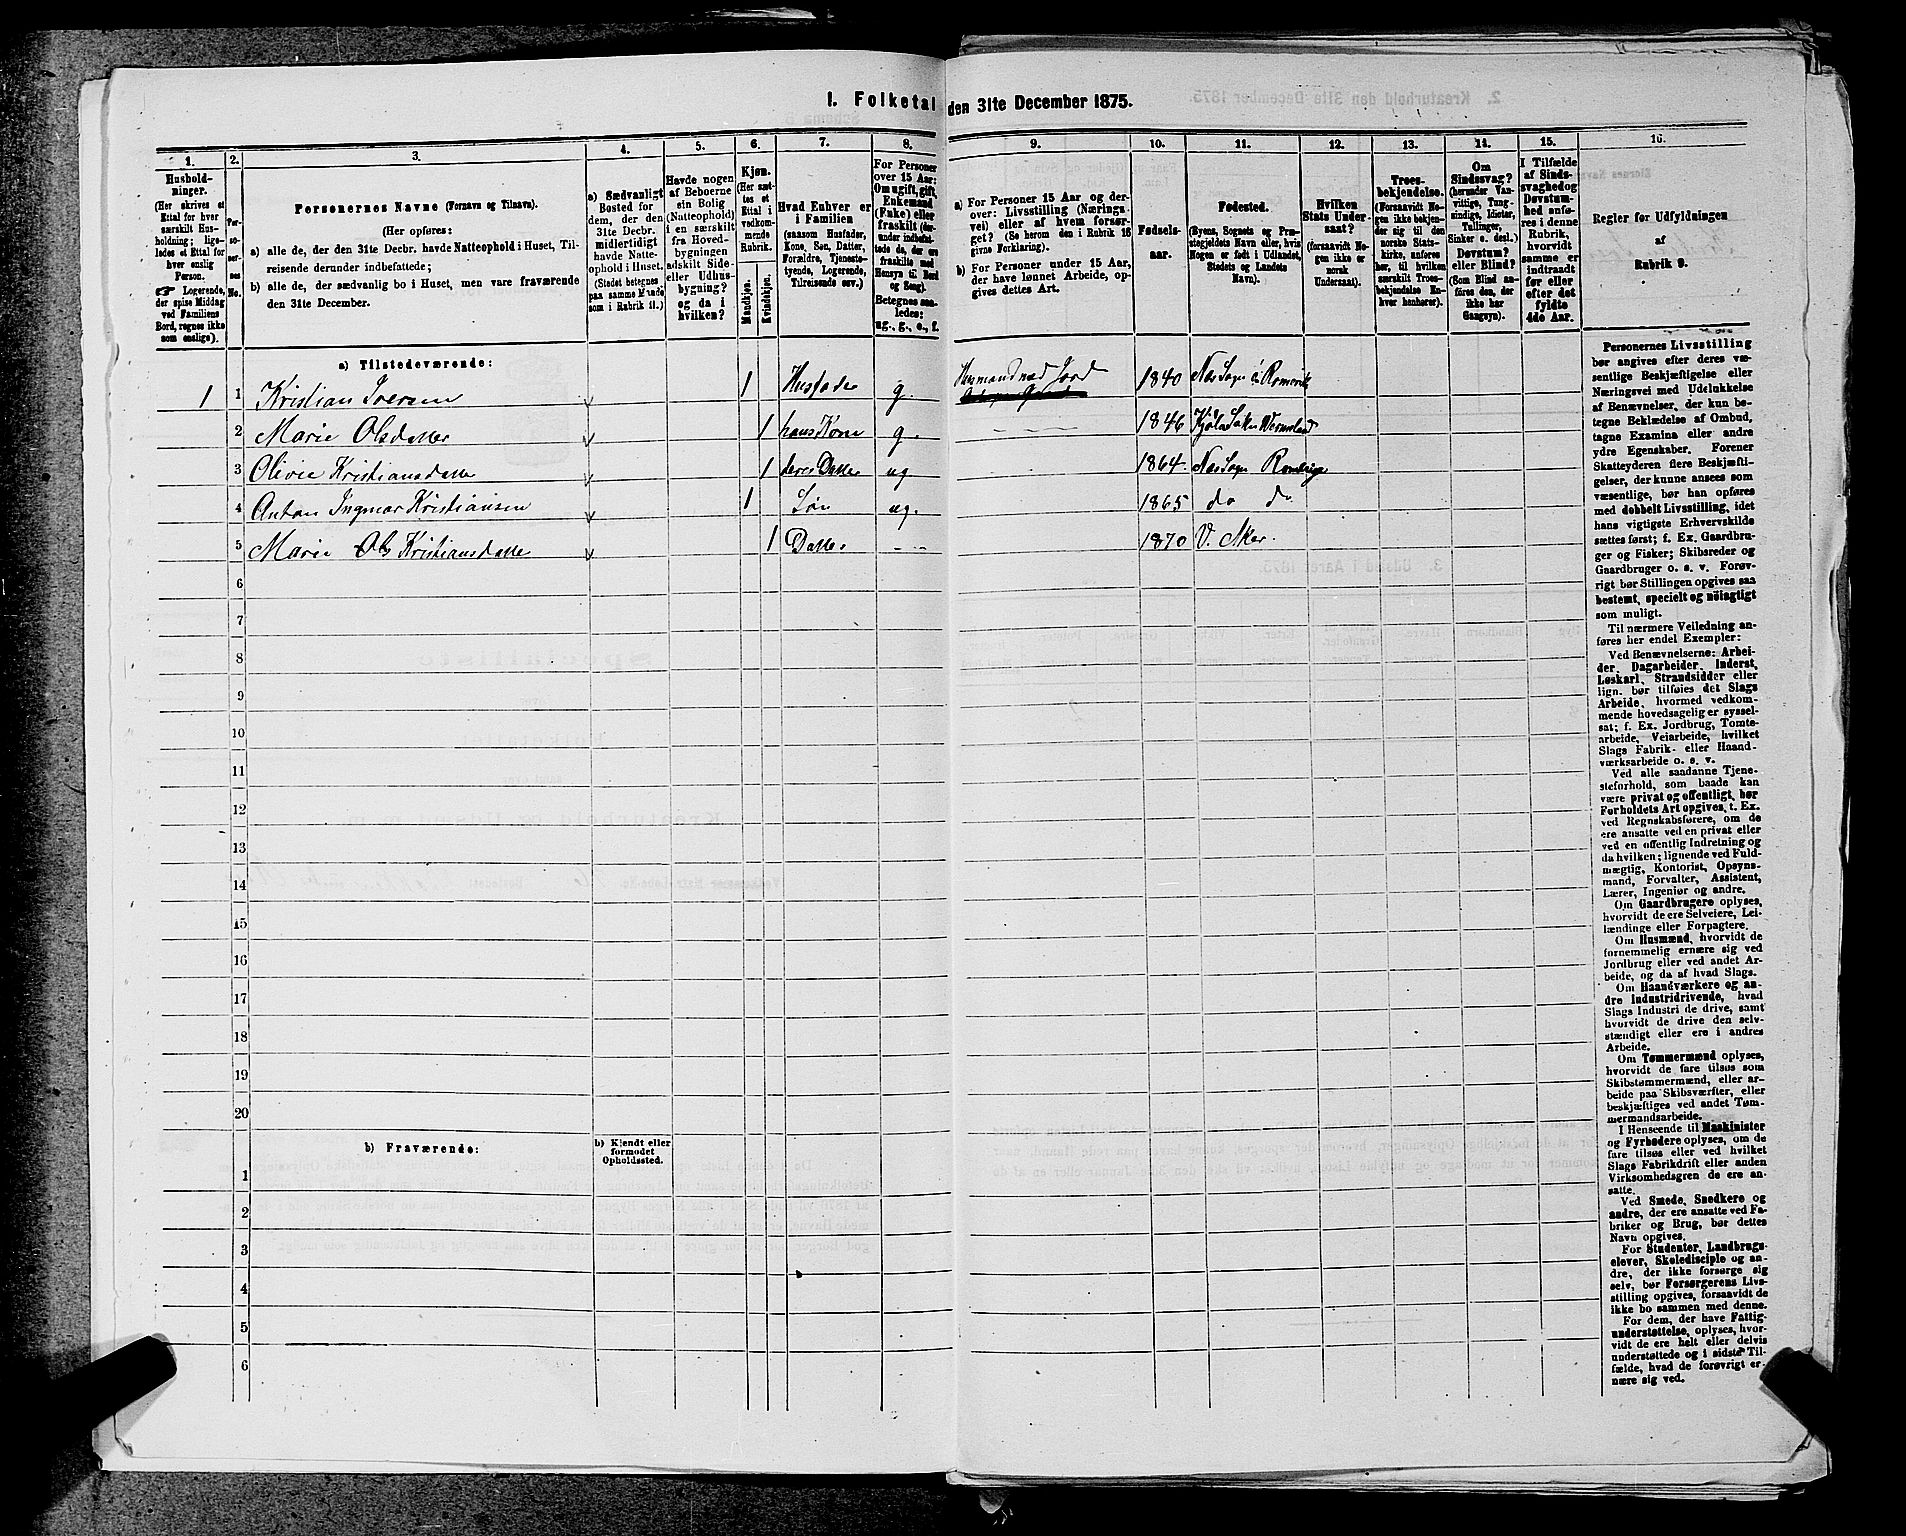 I. Folketal den 31te December 1875.
1. 2. 3. 4. 5. 6. 7. 8. 9. 10. 11. 12. 13. 14. 15. 16.
Husholdninger.
(Her skrives et
Ettal for hver
særskilt Husholdning;
ligeledes et Ettal for
hver enslig
Person.
☞ Logerende,
der spise Middag
ved Familiens
Bord, regnes ikke
som enslige).
Personernes No.
Personernes Navne (Fornavn og Tilnavn).
(Her opføres:
a) alle de, der den 31te Decbr. havde Natteophold i Huset, Tilreisende
derunder indbefattede;
b) alle de, der sædvanlig bo i Huset, men vare fraværende
den 31te December.
a) Sædvanligt
Bosted for
dem, der den
31te Decbr.
midlertidigt
havde Natteophold
i Huset.
(Stedet betegnes
paa samme Maade
som i Rubrik 11.)
Havde nogen
af Beboerne
sin Bolig
(Natteophold)
i en særskilt
fra Hovedbygningen
adskilt Side-
eller Udhusbygning?
og da i
hvilken?
Kjøn.
(Her sættes
et
Ettal i
vedkommende
Rubrik.
Mandkjøn.
Kvindekjøn.
Hvad Enhver er
i Familien
(saasom Husfader,
Kone, Søn, Datter,
Forældre, Tjenestetyende,
Logerende,
Tilreisende osv.)
For Personer
over 15 Aar:
Om ugift, gift,
Enkemand
(Enke) eller
fraskilt (derunder
indbefattede
de, der ere
fraskilte med
Hensyn til Bord
og Seng).
Betegnes saaledes:
ug., g., e., f.
a) For Personer 15 Aar og derover:
Livsstilling (Næringsvei)
eller af hvem forsørget?
(Se herom den i Rubrik 16
givne Forklaring).
b) For Personer under 15 Aar,
der have lønnet Arbeide, opgives
dettes Art.
Fødselsaar.
Fødested.
(Byens, Sognets og Præstegjeldets
Navn eller, hvis
Nogen er født i Udlandet,
Stedets og Landets
Navn).
Hvilken
Stats Undersaat?
(forsaavidt Nogen
ikke er
norsk
Undersaat).
Troesbekjendelse.
(Forsaavidt Nogen
ikke bekjender
sig til den
norske Statskirke,
anføres
her, til hvilken
særskilt Troesbekjendelse
Enhver
henhører).
Om
Sindssvag?
(herunder Vanvittige,
Tungsindige,
Idioter,
Tullinger,
Sinker o. desl.)
Døvstum?
eller Blind?
(Som Blind anføres
den, der
ikke har
Gangsyn).
I Tilfælde
af Sindssvaghed
og
Døvstumhed
anføres
i denne
Rubrik,
hvorvidt
samme er
indtraadt
før eller
efter det
fyldte
4de Aar.
Regler for Udfyldningen
af
Rubrik 9.
a) Tilstedeværende:
1 1 Kristian Iversen 1 Husfader g. Husmand med Jord 1840 Næs Sogn i Romerik
2 Marie Olsdatter 1 hans Kone g. — — — 1846
3 Olivie Kristiansdatter 1 deres Datter ug 1864. Næs Sogn
4 Anton Ingmar Kristiansen 1 Søn ug. 1865 do do
5 Marie Kristiansdatter 1 Datter — — 1870 V. Aker.
6
7
8
9
10
11
12
13
14
15
16
17
18
19
20
b) Fraværende:
b) Kjendt eller
formodet
Opholdssted.
1
2
3
4
5
6
Personernes Livsstilling
bør angives efter deres væsentlige
Beskjæftigelse eller
Næringsvei med Udelukkelse
af Benævnelser, der kun betegne
Beklædelse af Ombud,
tagne Examina eller andre
ydre Egenskaber. Forener
Skatteyderen flere Beskjæftigelser,
der kunne ansees som
væsentlige, bør han opføres
med dobbelt Livsstilling, idet
hans vigtigste Erhvervskilde
sættes først; f. Ex. Gaardbruger
og Fisker; Skibsreder og
Gaardbruger o. s. v. Forøvrigt
bør Stillingen opgives saa
bestemt, specielt og nöiagtigt
som muligt.
Til nærmere Veiledning anføres
her endel Exempler:
Ved Benævnelserne: Arbeider,
Dagarbeider, Inderst,
Løskarl, Strandsidder eller
lign. bør tilføies det Slags
Arbeide, hvormed vedkommende
hovedsagelig er sysselsat;
f. Ex. Jordbrug, Tomtearbeide,
Veiarbeide, hvilket
Slags Fabrik- eller Haandværksarbeide
o. s. v.
Ved alle saadanne Tjenesteforhold,
som baade kan
være privat og offentligt, bør
Forholdets Art opgives, t. Ex.
ved Regnskabsførere, om de
ere ansatte ved en privat eller
ved en offentlig Indretning og
da hvilken; lignende ved Fuldmægtig,
Kontorist, Opsynsmand,
Forvalter, Assistent,
Lærer, Ingeniør og andre.
Om Gaardbrugere oplyses,
hvorvidt de ere Selveiere, Leilændinge
eller Forpagtere.
Om Husmænd, hvorvidt de
fornemmelig ernære sig ved
Jordbrug eller ved andet Arbeide,
og da af hvad Slags.
Om Haandværkere og andre
Industridrivende, hvad
Slags Industri de drive, samt
hvorvidt de drive den selvstændigt
eller ere i andres
Arbeide.
Om Tømmermænd oplyses,
hvorvidt de fare tilsøs som
Skibstømmermænd, eller arbeide
paa Skibsværfter, eller
beskjæftiges ved andet Tømmermandsarbeide.
I Henseende til Maskinister
og Fyrbødere oplyses, om de
fare tilsøs eller ved hvilket
Slags Fabrikdrift eller anden
Virksomhedsgren de ere ansatte.
Ved Smede, Snedkere og
andre, der ere ansatte ved Fabriker
og Brug, bør dettes
Navn opgives.
For Studenter, Landbrugselever,
Skoledisciple og andre,
der ikke forsørge sig
selv, bør Forsørgerens Livsstilling
opgives, forsaavidt de
ikke bo sammen med denne.
For dem, der have Fattigunderstøttelse,
oplyses, hvorvidt
de ere helt eller delvis
understøttede og i sidste Tilfælde,
hvad de forøvrigt ernære
sig ved.